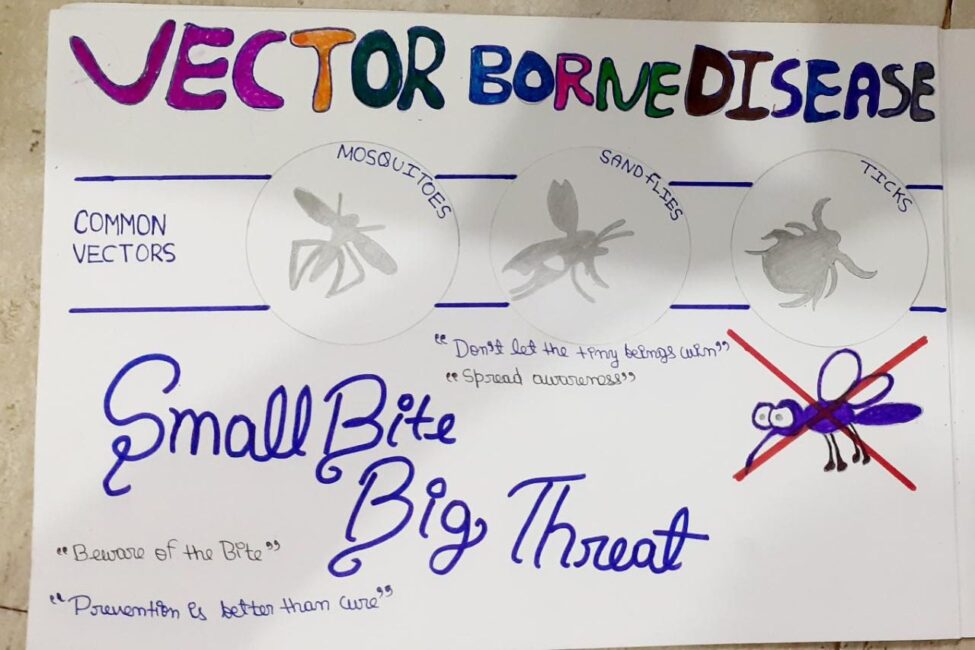 VECTOR BORNE DISEASE
MOSQUITOES
SANDFLIES
TICKS
COMMON
VECTORS
"Don't let the tiny beings win"
"Spread awareness"
Small Bite
Big Threat
"Beware of the Bite"
"Prevention is better than cure"